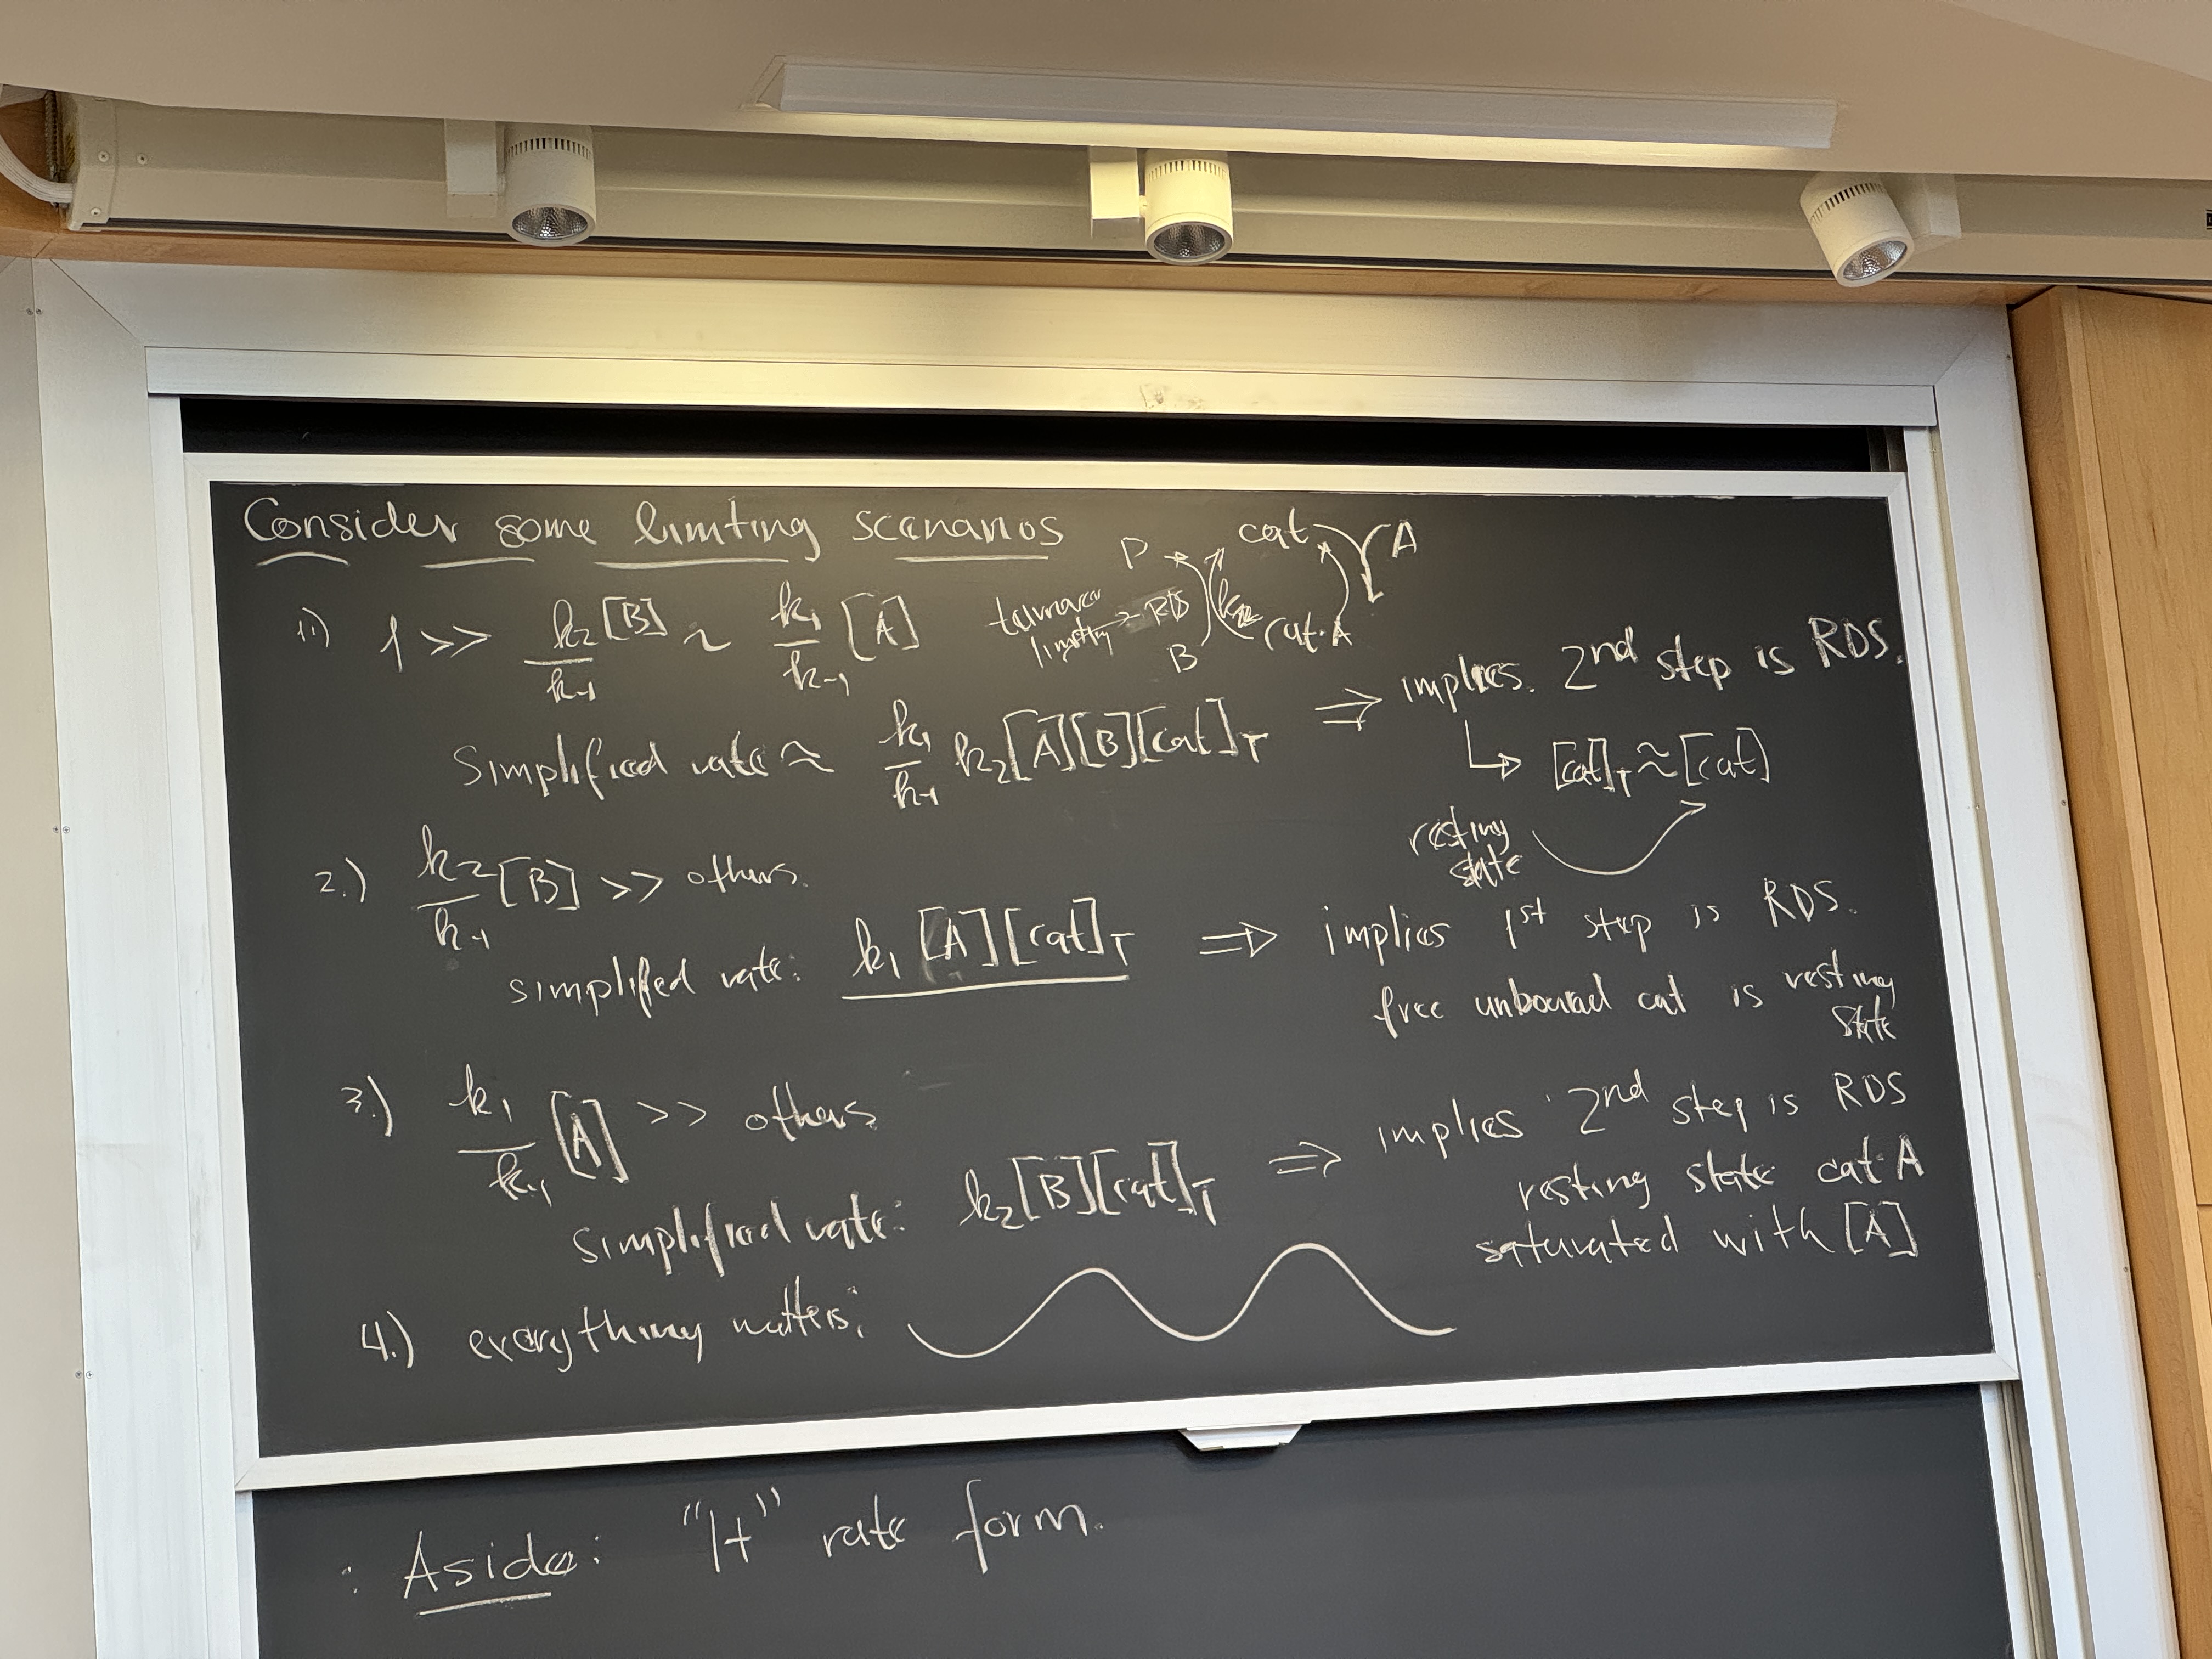 Consider some limiting scenarios
1.) 1 >> k₂[B]/k₋₁ ~ k₁/k₋₁ [A]
turnover limiting → RDS
P cat A
B k₂ cat·A
Simplified rate ≈ k₁/k₋₁ k₂[A][B][cat]_T ⇒ implies 2nd step is RDS.
↳ [cat]_T ≈ [cat]
resting state
2.) k₂/k₋₁ [B] >> others.
simplified rate: k₁[A][cat]_T ⇒ implies 1st step is RDS.
free unbound cat is resting state
3.) k₁/k₋₁ [A] >> others
simplified rate: k₂[B][cat]_T ⇒ implies 2nd step is RDS
resting state cat·A
saturated with [A]
4.) everything matters:
: Aside: "1+" rate form.